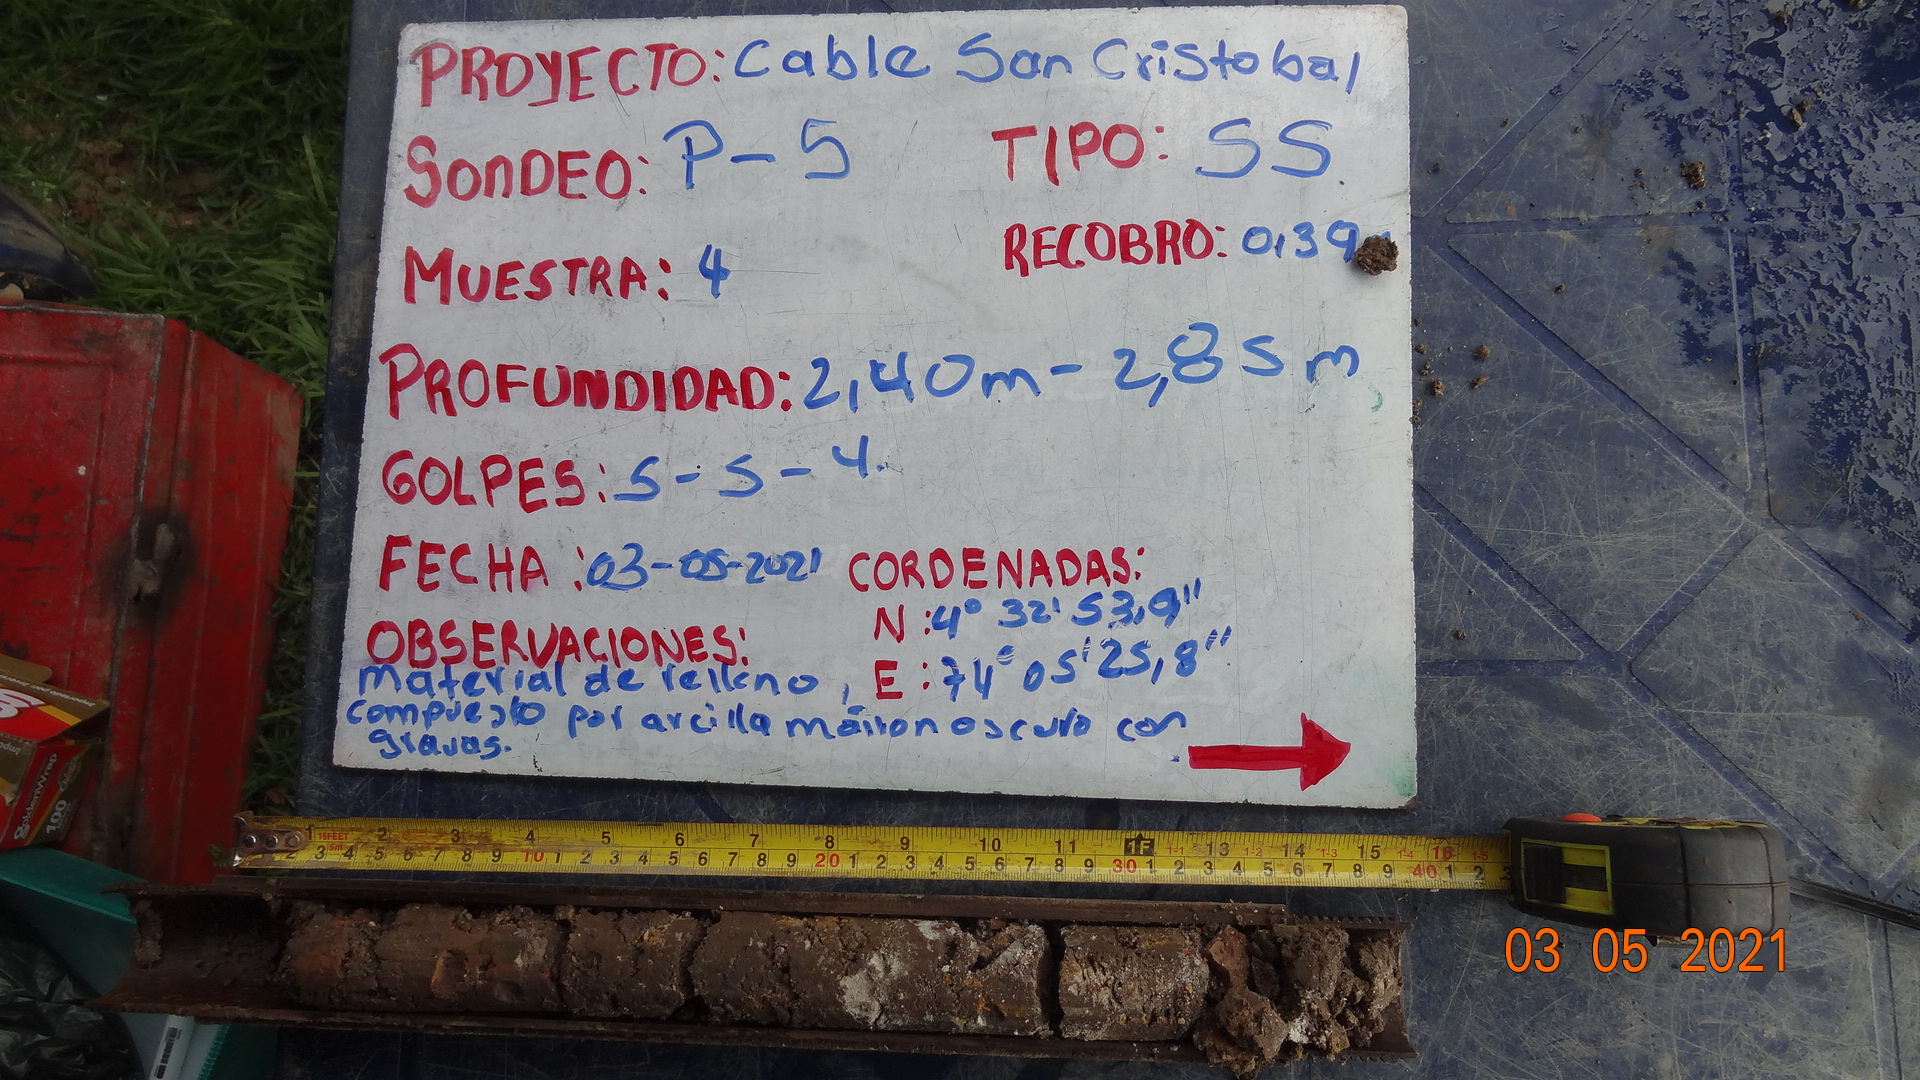 PROYECTO: Cable San Cristobal
SONDEO: P-5 TIPO: SS
MUESTRA: 4 RECOBRO: 0,39
PROFUNDIDAD: 2,40m - 2,85m
GOLPES: 5-5-4.
FECHA: 03-05-2021 CORDENADAS:
N: 4° 32' 53,9"
E: 74° 05' 25,8"
OBSERVACIONES:
material de relleno,
compuesto por arcilla marron oscuro con
gravas.
1 16FEET 2 3 4 5 6 7 8 9 10 11 1F 1-1 13 1-2 14 1-3 15 1-4 16 1-5
2 3 5m 4 6 7 8 9 10 1 2 3 4 5 6 7 8 9 20 1 2 3 4 5 6 7 8 9 30 1 2 3 4 5 6 7 8 9 40 1 2
GoldenWrap
100
03 05 2021